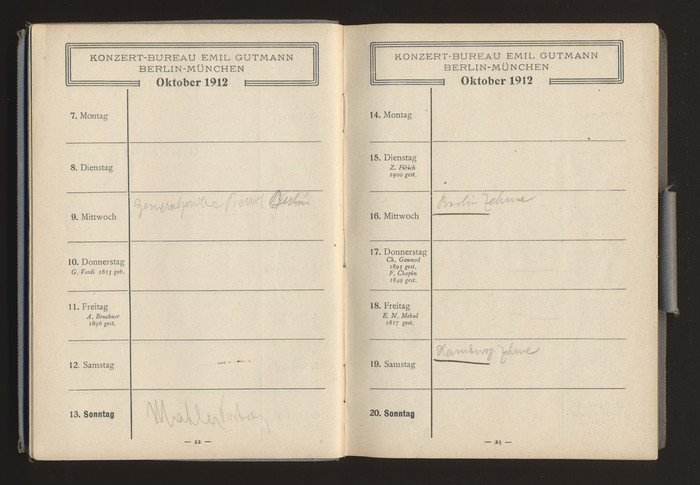 KONZERT-BUREAU EMIL GUTMANN
BERLIN-MÜNCHEN
Oktober 1912
7. Montag
8. Dienstag
9. Mittwoch
Generalprobe Pierrot Berlin
10. Donnerstag
G. Verdi 1813 geb.
11. Freitag
A. Bruckner
1896 gest.
12. Samstag
13. Sonntag
Mahler Vortrag
— 22 —
KONZERT-BUREAU EMIL GUTMANN
BERLIN-MÜNCHEN
Oktober 1912
14. Montag
15. Dienstag
Z. Fibich
1900 gest.
16. Mittwoch
Berlin Zehme
17. Donnerstag
Ch. Gounod
1893 gest.
F. Chopin
1849 gest.
18. Freitag
E. N. Mehul
1817 gest.
19. Samstag
Hamburg Zehme
20. Sonntag
— 23 —